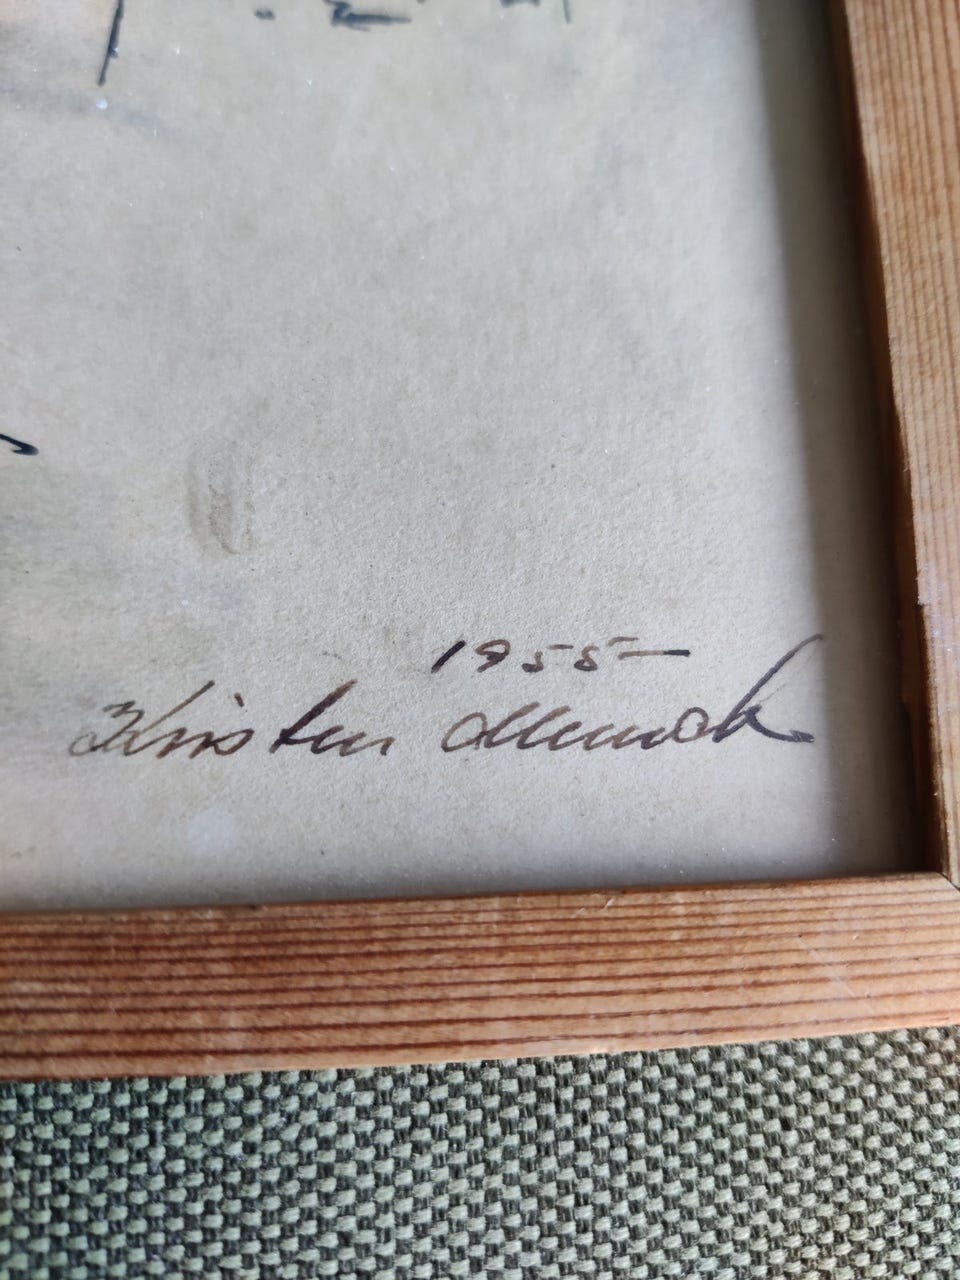 1955-
Kirsten Munck